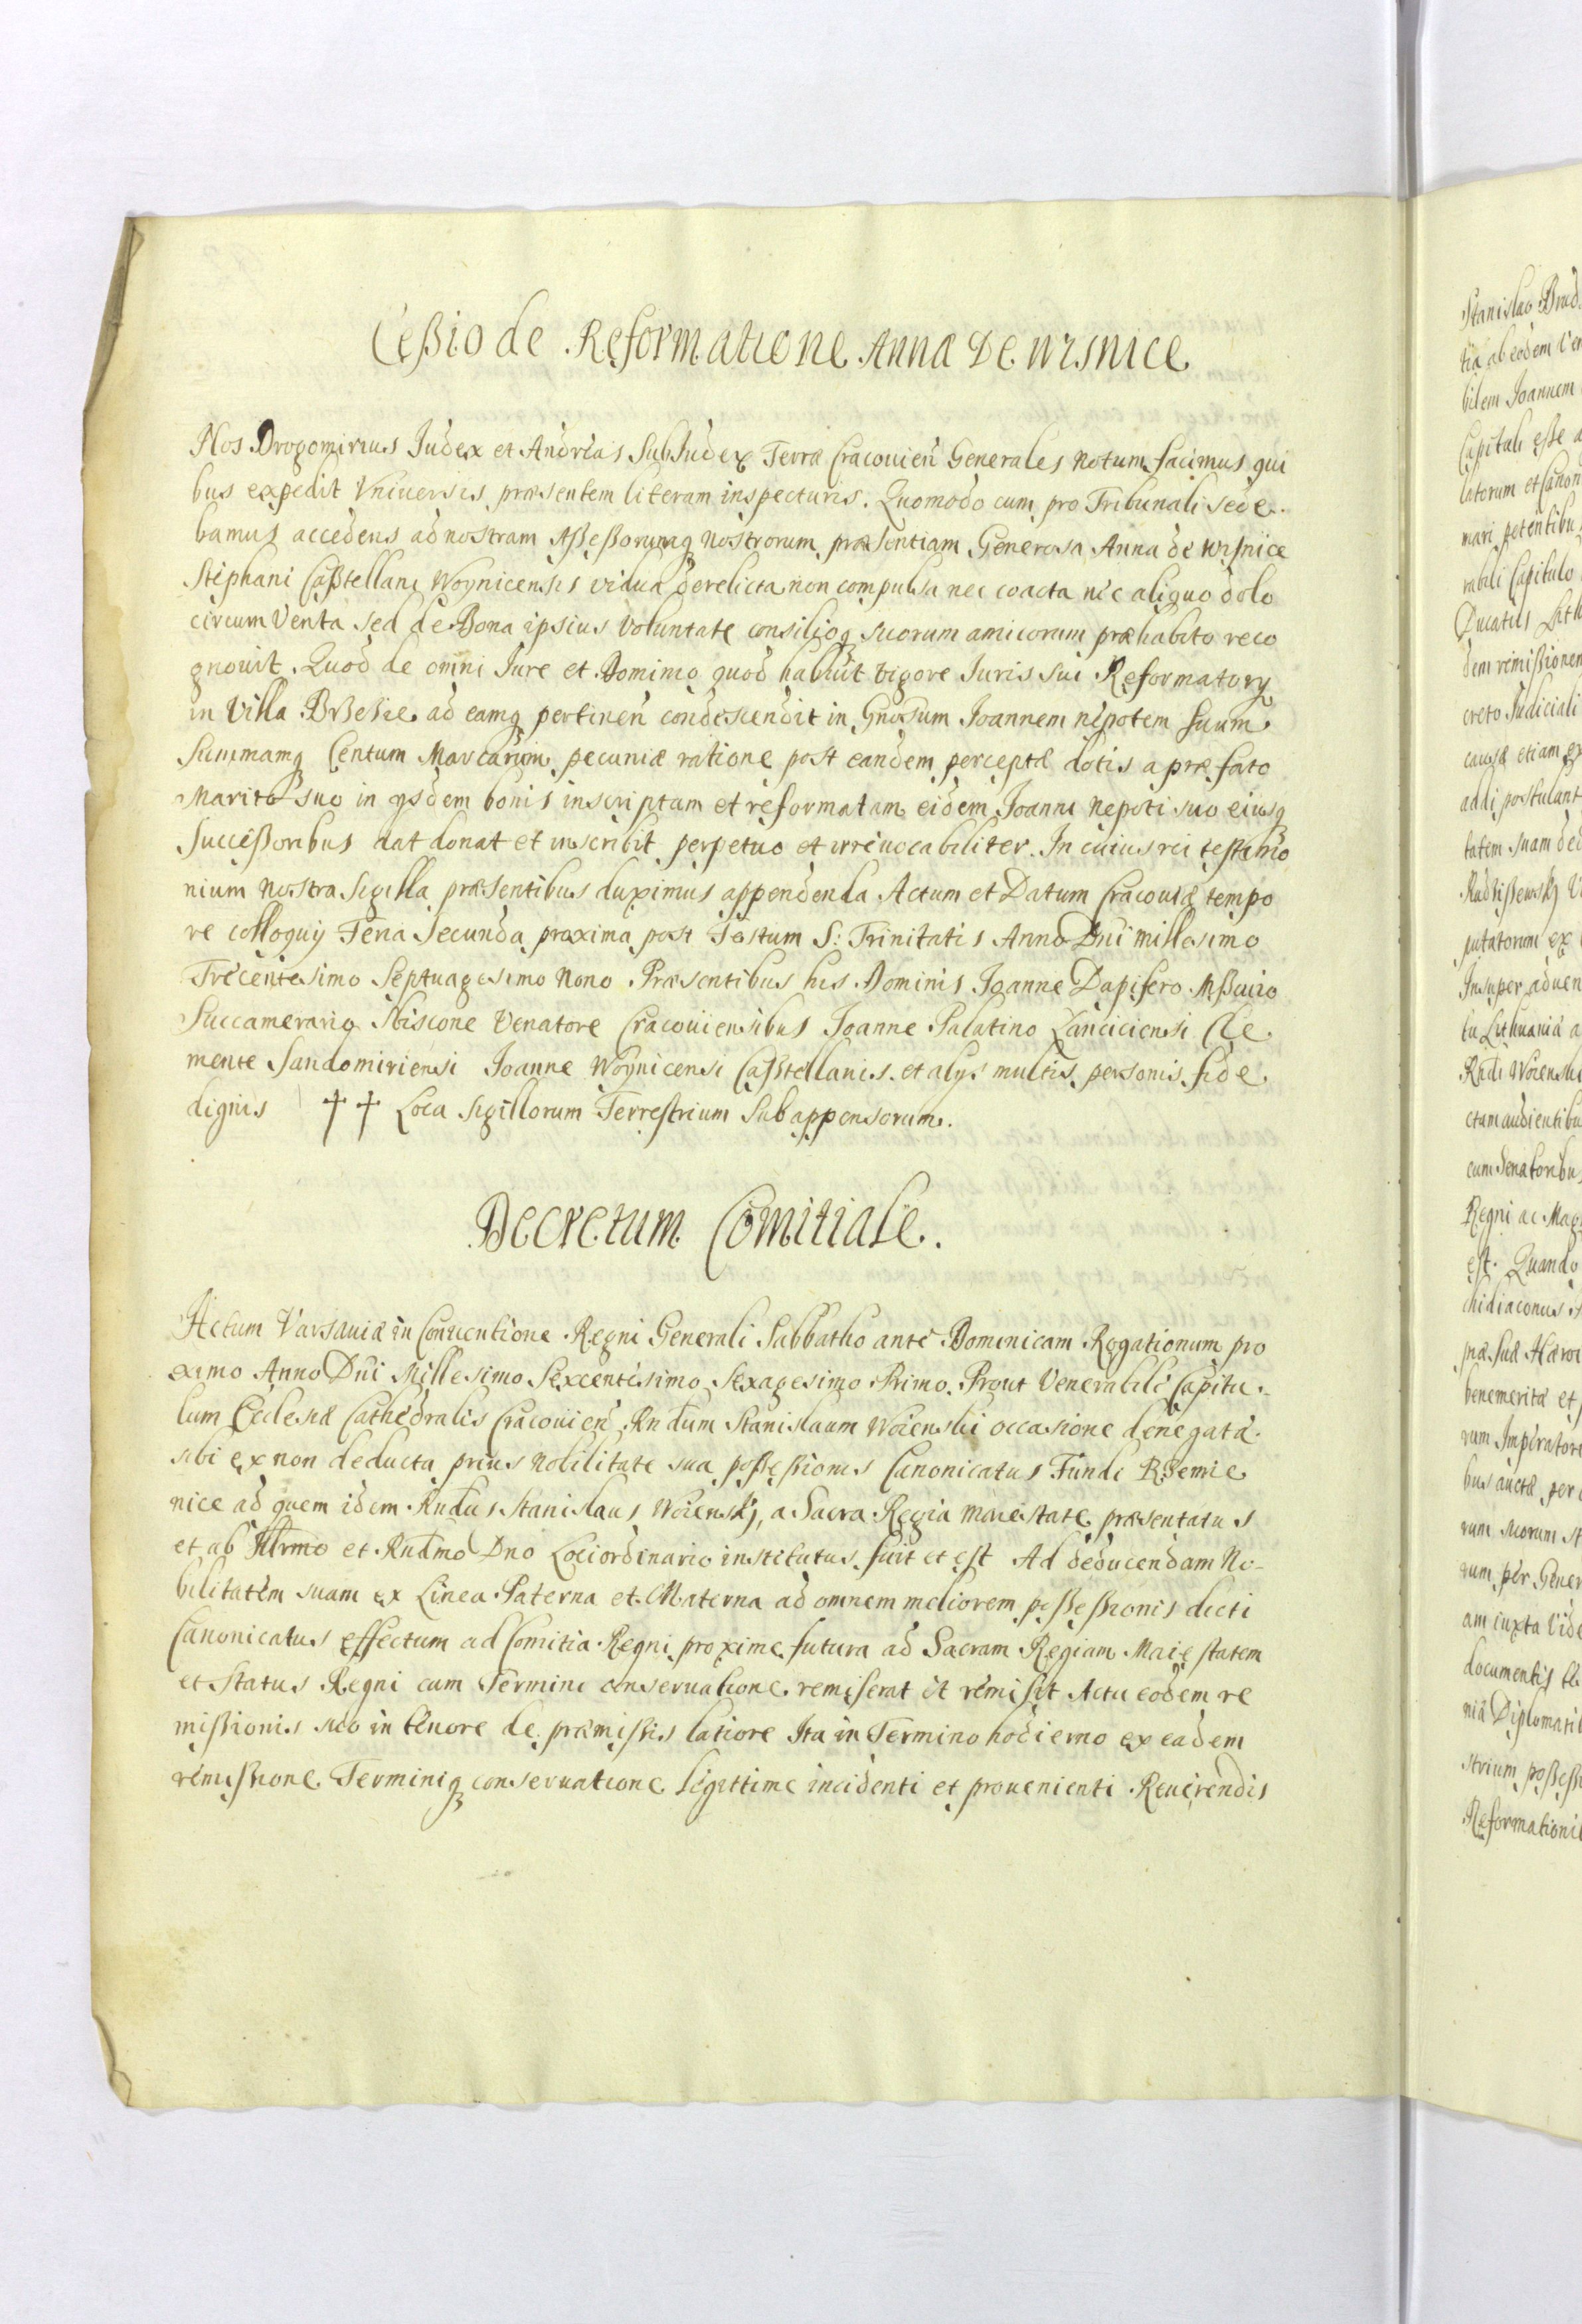 Ceßio de Reformatione Annæ De Wisnice
Nos Drogomirus Iudex et Andreas SubIudex Terræ Cracouien̄ Generales notum facimus qui
bus expedit Vniuersis præsentem literam inspecturis. Quomodo cum pro Tribunali sede
bamus accedens ad nostram Aßeßorumq nostrorum præsentiam Generosa Anna de Wisnice
Stephani Caßtellani Woynicensis vidua derelicta non compulsa nec coacta nec aliquo dolo
circumVenta sed de Bona ipsius Voluntate consilioq suorum amicorum præhabito reco
gnouit. Quod de omni Iure et Dominio quod habuit vigore Iuris sui Reformatory
in Villa Brzesie ad eamq pertinen̄ condescendit in Gnosum Ioannem nepotem suum
Summamq Centum Marcarum pecuniæ ratione post eandem perceptæ dotis a præfato
Marito suo in ysdem bonis inscriptam et reformatam eidem Ioanni Nepoti suo eiusq
Succeßoribus dat donat et inscribit perpetuo et irreuocabiliter. In cuius rei testimo
nium nostra Sigilla præsentibus duximus appendenda Actum et Datum Cracouiæ tempo
re colloquij Feria Secunda proxima post Festum S: Trinitatis Anno Dn̄i millesimo
Trecentesimo Septuagesimo Nono. Præsentibus his Dominis Ioanne Dapifero Mßcuio
Succamerario Sbiscone Venatore Cracouiensibus Ioanne Palatino Lanciciensi Cle
mente Sandomiriensi Ioanne Woynicensi Caßtellanis et alys multis personis fide
dignis † † Loca Sigillorum Terrestrium Subappensorum.
Decretum Comitiale.
Actum Varsauiæ in Conuentione Regni Generali Sabbatho ante Dominicam Rogationum pro
ximo Anno Dn̄i Millesimo Sexcentesimo Sexagesimo Primo. Prout Venerabile Capitu
lum Ecclesiæ Cathedralis Cracouien̄ Rn̄dum Stanislaum Woienski occasione denegatæ
sibi ex non deducta prius Nobilitate sua poßeßionis Canonicatus Fundi Rzemie
nice ad quem idem Rn̄dus Stanislaus Woienskj, a Sacra Regia Maiestate præsentatus
et ab Illrmo et Rn̄dmo Dno Lociordinario institutus fuit et est Ad deducendam No-
bilitatem suam ex Linea Paterna et Materna ad omnem meliorem poßeßionis dicti
Canonicatus effectum ad Comitia Regni proxime futura ad Sacram Regiam Maiestatem
et Status Regni cum Termini conseruatione remiserat et remisit Actu eodem re
mißionis suo in tenore de præmißis latiore Ita in Termino hodierno ex eadem
remißione Terminiq conseruatione legittime incidenti et prouenienti Reuerendis
Stanislao
tia ab eodem
bilem Ioannem
Capituli eße
latorum et Canon
mari petentibu
rabili Capitulo
Ducatus Lith
dem remißionem
creto Iudiciali
causæ etiam ex
addi postulant
tatem suam ded
putatorum ex
Insuper aduen
tu Lithuaniæ a
Rndi Woienski
ctam audientibu
cum Senatoribu
Regni ac Mag
est. Quando
chidiaconus
benemeritæ et
rum Imperatoru
bus auctæ per
rum suorum st
rum per Gener
am iuxta Vide
documentis
nia Diplomati
strium poßeßi
Reformationi